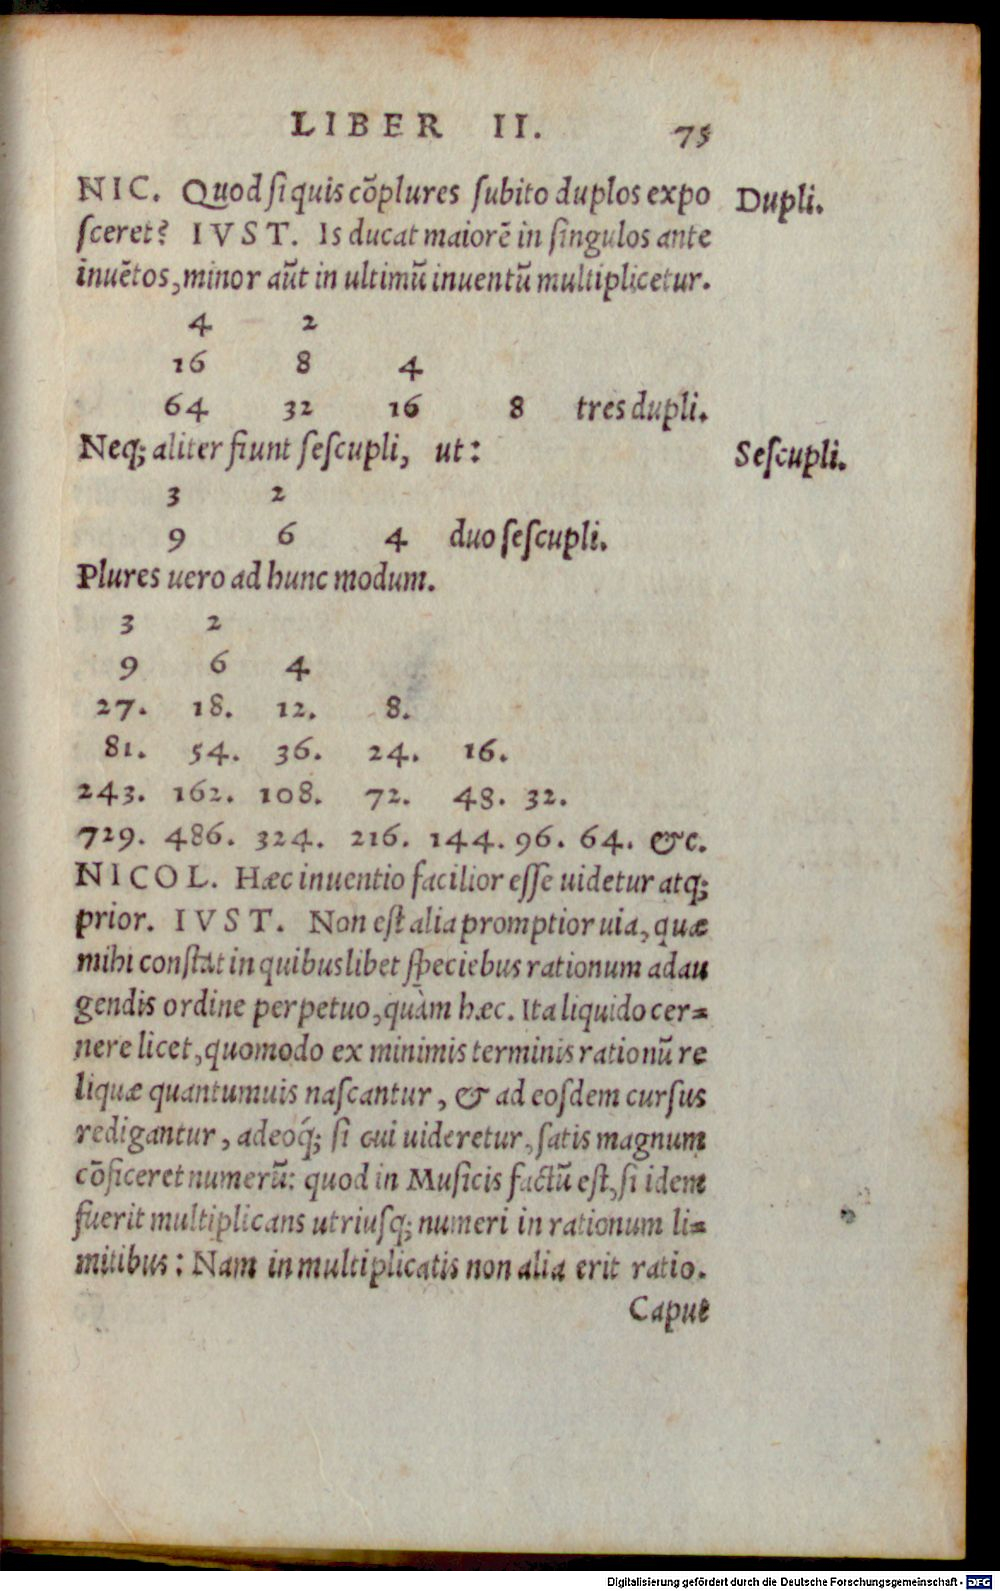 LIBER II. 75
NIC. Quod ſi quis cõplures ſubito duplos expo
Dupli.
ſceret? IVST. Is ducat maiorẽ in ſingulos ante
inuẽtos, minor aũt in ultimũ inuentũ multiplicetur.
4 2
16 8 4
64 32 16 8 tres dupli.
Neq; aliter fiunt ſeſcupli, ut:
Seſcupli.
3 2
9 6 4 duo ſeſcupli.
Plures uero ad hunc modum.
3 2
9 6 4
27. 18. 12. 8.
81. 54. 36. 24. 16.
243. 162. 108. 72. 48. 32.
729. 486. 324. 216. 144. 96. 64. &c.
NICOL. Hæc inuentio facilior eſſe uidetur atq;
prior. IVST. Non eſt alia promptior uia, quæ
mihi conſtat in quibuslibet ſpeciebus rationum adau
gendis ordine perpetuo, quàm hæc. Ita liquido cer=
nere licet, quomodo ex minimis terminis rationũ re
liquæ quantumuis naſcantur, & ad eoſdem curſus
redigantur, adeoq́; ſi cui uideretur, ſatis magnum
cõficeret numerũ: quod in Muſicis factũ eſt, ſi idem
fuerit multiplicans utriuſq; numeri in rationum li=
mitibus: Nam in multiplicatis non alia erit ratio.
Caput
Digitalisierung gefördert durch die Deutsche Forschungsgemeinschaft - DFG